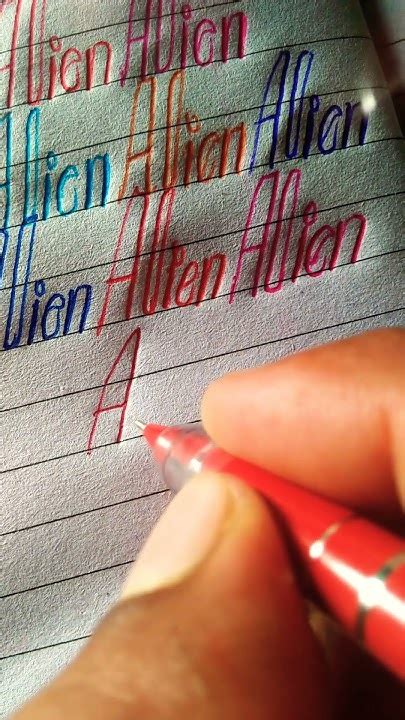 Alien Alien
Alien Alien Alien
Alien Alien Alien
A